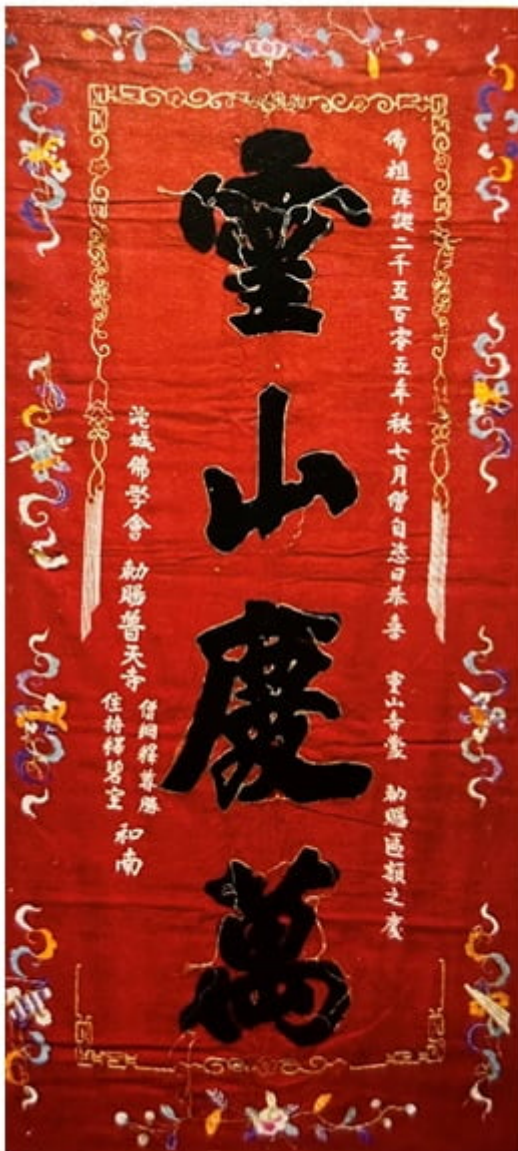 佛祖降誕二千五百零五年秋七月僧自恣日恭喜 靈山寺蒙 勅賜匾額之慶
靈山慶萬
沱城佛學會 勅賜普天寺
僧綱釋尊勝
住持釋碧空
和南